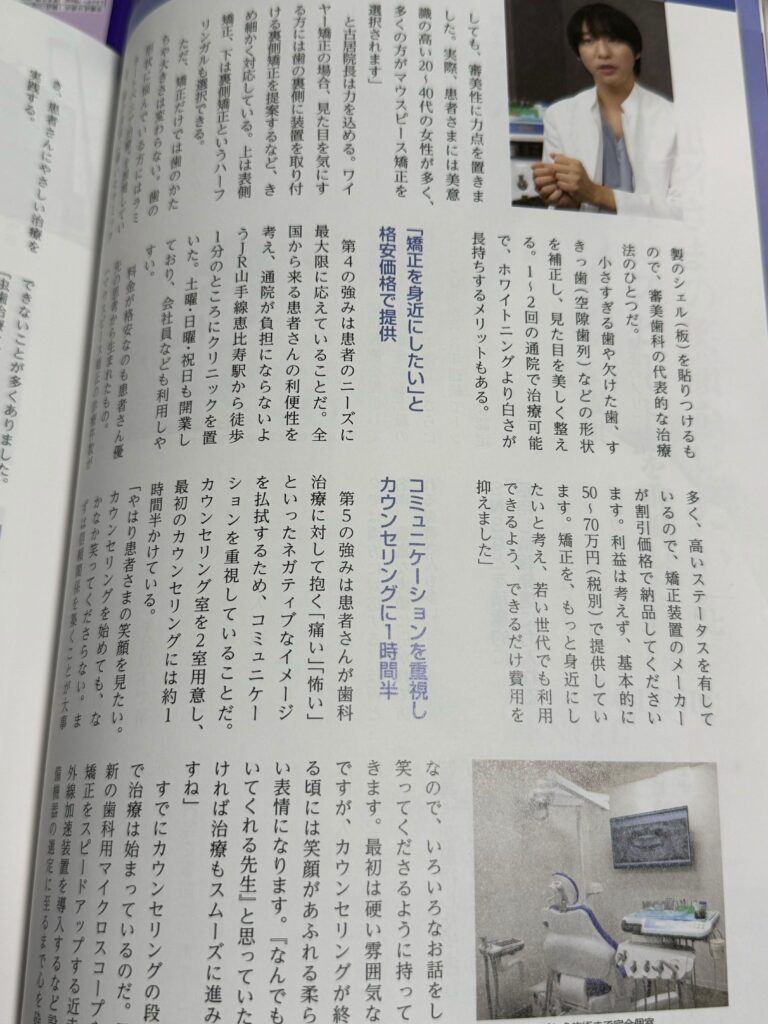 しても、審美性に力点を置きま
した。実際、患者さまには美意
識の高い20〜40代の女性が多く、
多くの方がマウスピース矯正を
選択されます」
と古居院長は力を込める。ワイ
ヤー矯正の場合、見た目を気にす
る方には歯の裏側に装置を取り付
ける裏側矯正を提案するなど、き
め細かく対応している。上は表側
矯正、下は裏側矯正というハーフ
リンガルも選択できる。
ただ、矯正だけでは歯のかた
ちや大きさは変わらない。歯の
形状に悩んでいる方にはラミ
製のシェル(板)を貼りつけるも
ので、審美歯科の代表的な治療
法のひとつだ。
小さすぎる歯や欠けた歯、す
きっ歯(空隙歯列)などの形状
を補正し、見た目を美しく整え
る。1〜2回の通院で治療可能
で、ホワイトニングより白さが
長持ちするメリットもある。
「矯正を身近にしたい」と
格安価格で提供
第4の強みは患者のニーズに
最大限に応えていることだ。全
国から来る患者さんの利便性を
考え、通院が負担にならないよ
うJR山手線恵比寿駅から徒歩
1分のところにクリニックを置
いた。土曜・日曜・祝日も開業し
ており、会社員なども利用しや
すい。
料金が格安なのも患者さん優
先の思想から生まれたもの。
多く、高いステータスを有して
いるので、矯正装置のメーカー
が割引価格で納品してください
ます。利益は考えず、基本的に
50〜70万円(税別)で提供してい
ます。矯正を、もっと身近にし
たいと考え、若い世代でも利用
できるよう、できるだけ費用を
抑えました」
コミュニケーションを重視し
カウンセリングに1時間半
第5の強みは患者さんが歯科
治療に対して抱く「痛い」「怖い」
といったネガティブなイメージ
を払拭するため、コミュニケー
ションを重視していることだ。
カウンセリング室を2室用意し、
最初のカウンセリングには約1
時間半かけている。
「やはり患者さまの笑顔を見たい。
カウンセリングを始めても、な
かなか笑ってくださらない。ま
ずは信頼関係を築くことが大事
なので、いろいろなお話をし
笑ってくださるように持って
きます。最初は硬い雰囲気な
ですが、カウンセリングが終
る頃には笑顔があふれる柔ら
い表情になります。『なんでも
いてくれる先生』と思っていた
ければ治療もスムーズに進み
すね」
すでにカウンセリングの段
で治療は始まっているのだ。
新の歯科用マイクロスコープ
矯正をスピードアップする近
外線加速装置を導入するなど設
備機器の選定に至るまで心を
き、患者さんにやさしい治療を
実践する。
できないことが多くありました。